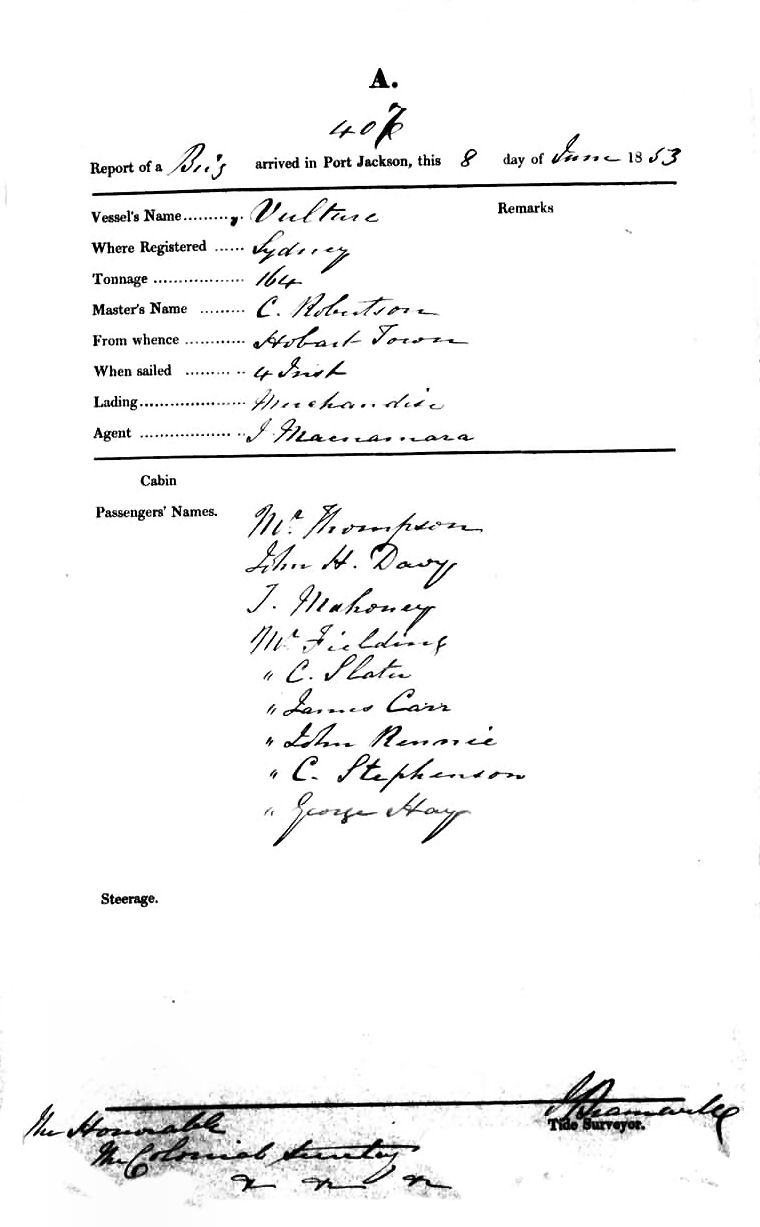 A.
Report of a Brig arrived in Port Jackson, this 8 day of June 1853
Vessel's Name.......... Vulture Remarks
Where Registered ...... Sydney
Tonnage .................. 164
Master's Name ......... C. Robertson
From whence ............ Hobart Town
When sailed ........... 4 Inst
Lading..................... Merchandise
Agent .................... J Macnamara
Cabin
Passengers' Names.
Mr. Thompson
John H. Davy
T. Mahoney
Mr. Fielding
" C. Slater
" James Carr
" John Rennie
" C. Stephenson
" George Hay
Steerage.
The Honorable
Tide Surveyor.
The Colonial Secretary